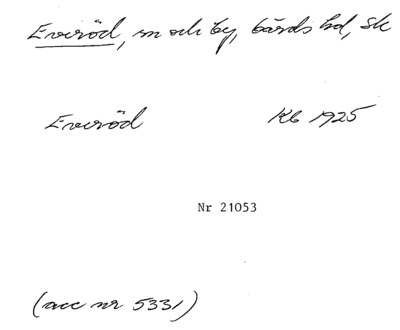 Everöd, sn och by, Gärds hd, Sk
Everöd Kb 1925
Nr 21053
(acc nr 5331)